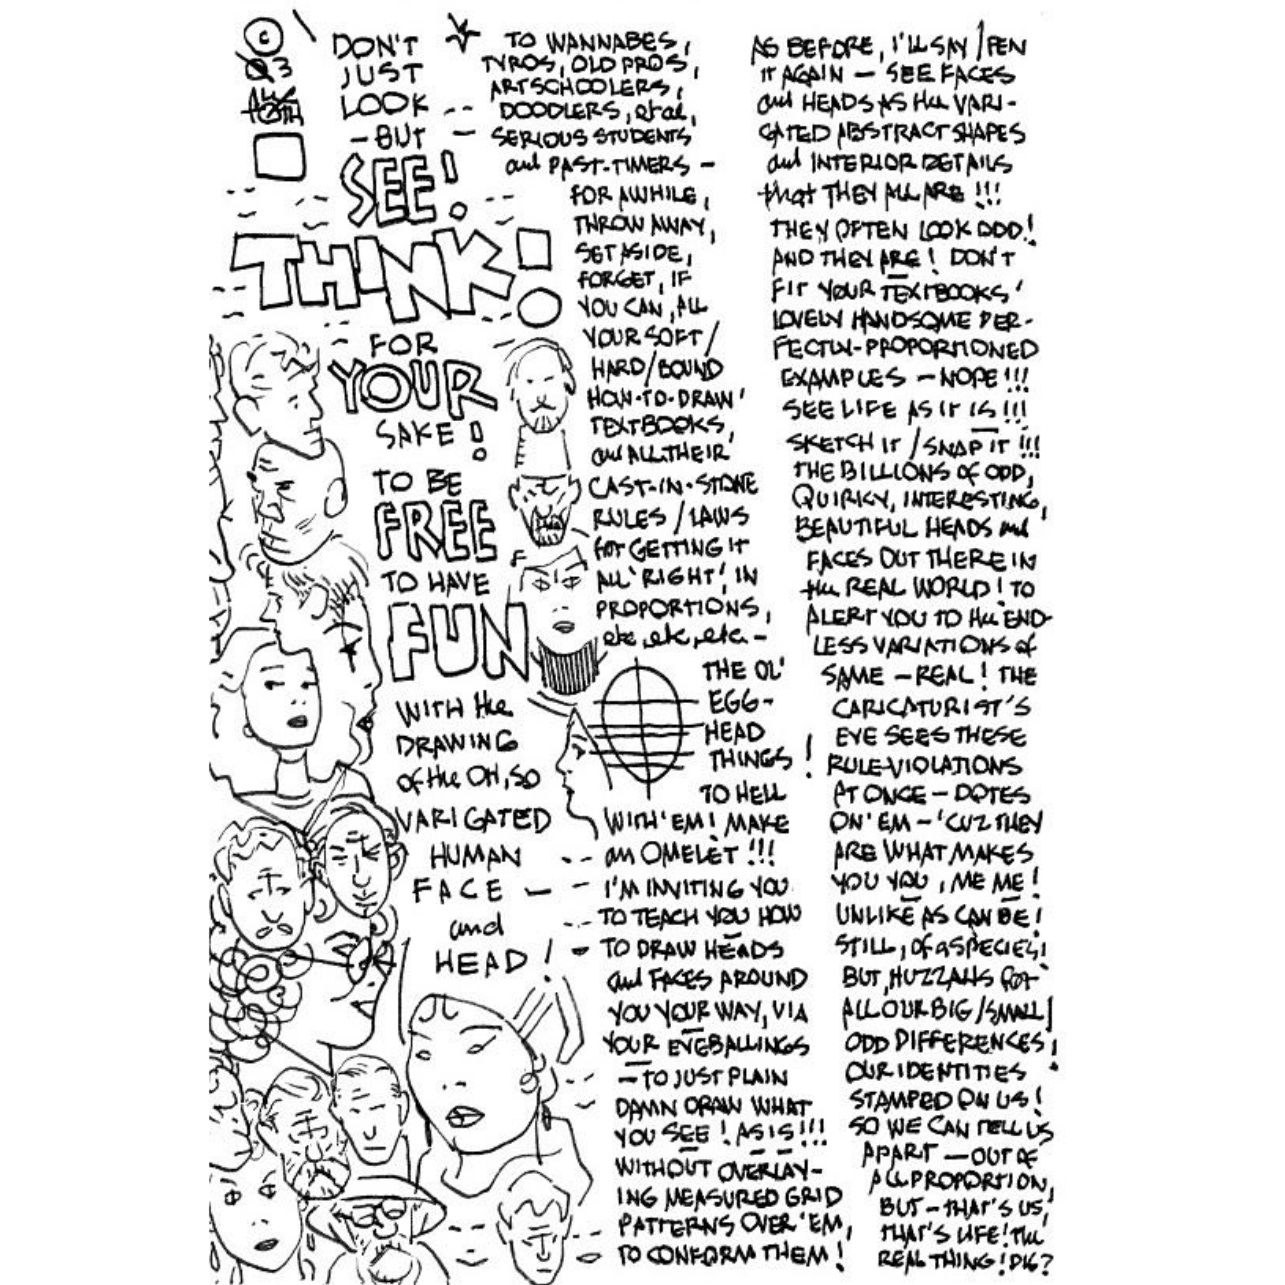 © '03
ALEX
TOTH
DON'T
JUST
LOOK --
- BUT -
SEE!
THINK!
- FOR
YOUR
SAKE!
TO BE
FREE
TO HAVE
FUN
WITH the
DRAWING
of the OH, SO
VARIGATED
HUMAN
FACE -
and
HEAD!
TO WANNABES,
TYROS, OLD PROS,
ARTSCHOOLERS,
DOODLERS, et al,
SERIOUS STUDENTS
and PAST-TIMERS -
FOR AWHILE,
THROW AWAY,
SET ASIDE,
FORGET, IF
YOU CAN, ALL
YOUR SOFT/
HARD/BOUND
'HOW-TO-DRAW'
TEXTBOOKS,
and ALL THEIR
CAST-IN-STONE
RULES / LAWS
for GETTING IT
ALL 'RIGHT', IN
PROPORTIONS,
etc, etc, etc. -
THE OL'
EGG-
HEAD
THINGS!
TO HELL
WITH 'EM! MAKE
an OMELET!!!
I'M INVITING YOU
TO TEACH YOU HOW
TO DRAW HEADS
and FACES AROUND
YOU YOUR WAY, VIA
YOUR EYEBALLINGS
- TO JUST PLAIN
DAMN DRAW WHAT
YOU SEE! AS IS!!!
WITHOUT OVERLAY-
ING MEASURED GRID
PATTERNS OVER 'EM,
TO CONFORM THEM!
AS BEFORE, I'LL SAY/PEN
IT AGAIN - SEE FACES
and HEADS AS the VARI-
GATED ABSTRACT SHAPES
and INTERIOR DETAILS
that THEY ALL ARE!!!
THEY OFTEN LOOK ODD!
AND THEY ARE! DON'T
FIT YOUR TEXTBOOKS'
LOVELY HANDSOME PER-
FECTLY-PROPORTIONED
EXAMPLES - NOPE!!!
SEE LIFE AS IT IS!!!
SKETCH IT / SNAP IT!!!
THE BILLIONS of ODD,
QUIRKY, INTERESTING,
BEAUTIFUL HEADS and
FACES OUT THERE IN
the REAL WORLD! TO
ALERT YOU TO the END-
LESS VARIATIONS of
SAME - REAL! THE
CARICATURIST'S
EYE SEES THESE
RULE-VIOLATIONS
AT ONCE - DOTES
ON 'EM - 'CUZ THEY
ARE WHAT MAKES
YOU YOU, ME ME!
UNLIKE AS CAN BE!
STILL, OF a SPECIES!
BUT, HUZZAHS for
ALL OUR BIG/SMALL/
ODD DIFFERENCES,
OUR IDENTITIES
STAMPED ON US!
SO WE CAN TELL US
APART - OUT OF
ALL PROPORTION,
BUT - THAT'S US,
THAT'S LIFE! THE
REAL THING! DIG?